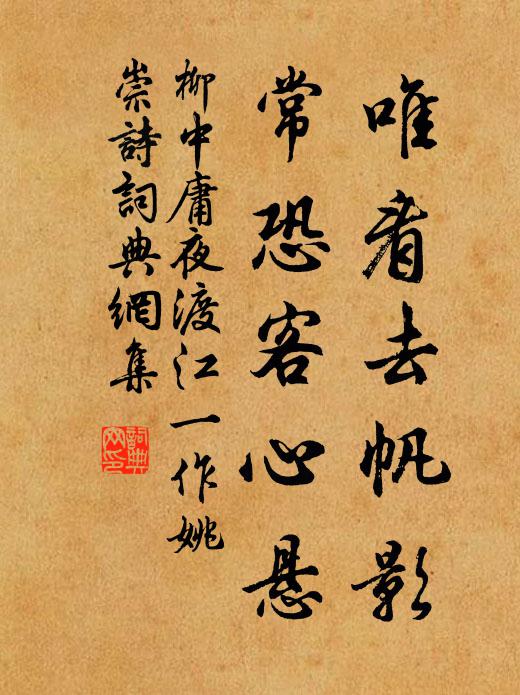 唯看去帆影
常恐客心悬
柳中庸夜渡江一作姚
崇詩詞典網集
詞典
网印